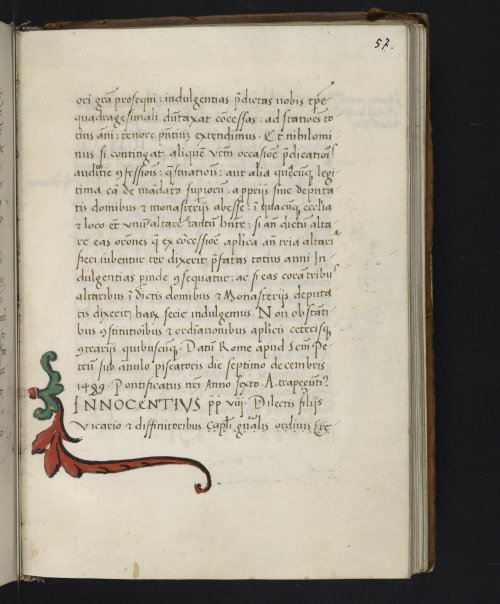 57.
ori grã prosequi: indulgentias p̃dictas uobis tp̃e
quadragesimali dũtaxat cõcessas: ad statiões to
tius añi: tenore p̃ntiũ extendimus. Et nihilomi
nus si contingat aliquẽ ur̃m occasiõe p̃dicatiõis
auditiõe ꝯfessiõis: q̃stuatiõis: aut alia quacũq; legi
tima cã de mãdato supiorũ. a pprijs siue deputa
tis domibus & monasterijs abesse: ĩ quacũq; ecclia
& loco et̃ unũ altare tantũ hñte: si añ dictũ alta
re eas orones q̃ ex cõcessiõe aplica añ tria altaria
fieri iubentur ter dixerit p̃fatas totius anni In
dulgentias pinde ꝯsequatur: ac si eas corã tribus
altaribus ĩ dictis domibus & Monasterijs deputa
tis dixerit harũ serie indulgemus. Non obstãti
bus ꝯstitutioĩbus & ordiationibus aplicis ceterisq;
ꝯtrarijs quibuscũq;. Datũ Rome apud Scũm Pe
trũm sub añulo piscatoris die septimo decembris
1489. Pontificatus nr̃i Anno sexto. A. trapezũti9.
INNOCENTIVS pp̃ viij. Dilectis filijs
Vicario & diffinitoribus Capl̃i gñalis ordinis